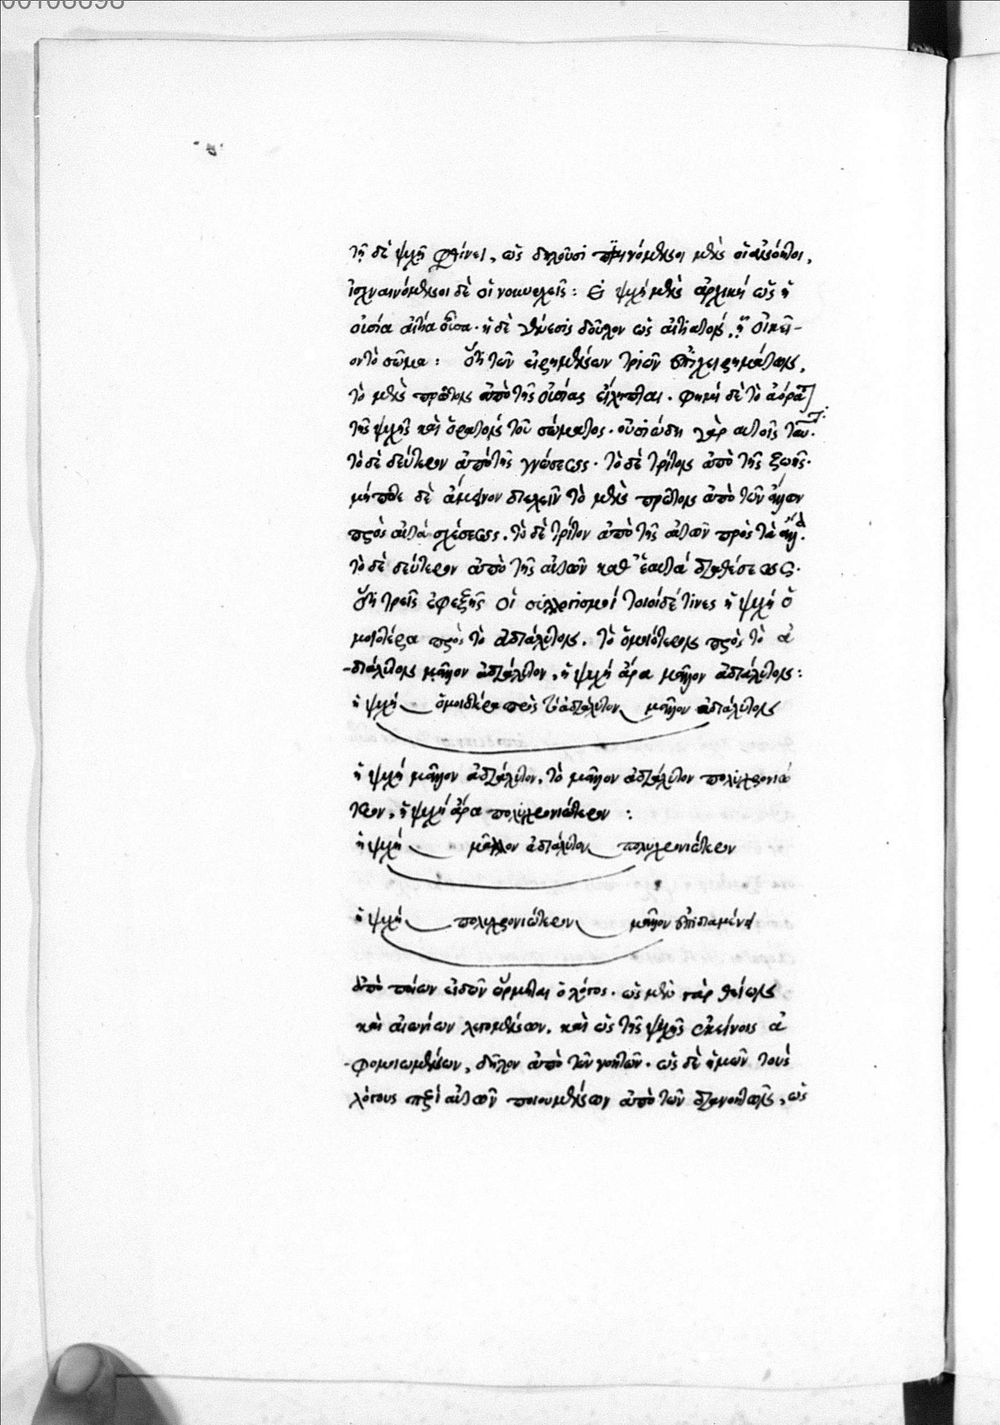 τῇ δὲ ψυχῇ φθίνει, ὡς δηλοῦσι πιαινόμενοι μὲν οἱ ἀνόητοι,
ἰσχναινόμενοι δὲ οἱ νουνεχεῖς: Εἰ ψυχὴ μὲν ἀρχικὴ ὡς ἡ
οὐσία αἰτία οὖσα. ἡ δὲ γένεσις δοῦλον ὡς αἰτιατόν, ᾗ οἰκεῖ-
ον τὸ σῶμα: ὅτι τῶν εἰρημένων τριῶν ἐπιχειρημάτων,
τὸ μὲν πρῶτον ἀπὸ τῆς οὐσίας εἴληπται. φημὶ δὲ τὸ ἀόρατον
τῆς ψυχῆς καὶ ὁρατὸν τοῦ σώματος. οὐσιώδη γὰρ αὐτοῖς ταῦτα.
τὸ δὲ δεύτερον ἀπὸ τῆς γνώσεως. τὸ δὲ τρίτον ἀπὸ τῆς ζωῆς.
μήποτε δὲ ἄμεινον διελεῖν τὸ μὲν πρῶτον ἀπὸ τῶν
πρὸς αὐτὰ σχέσεως. τὸ δὲ τρίτον ἀπὸ τῆς αὐτῶν πρὸς τὰ
τὸ δὲ δεύτερον ἀπὸ τῆς αὐτῶν καθ' ἑαυτὰ διαθέσεως.
ὅτι τρεῖς ἐφεξῆς οἱ συλλογισμοὶ τοιοίδέ τινες ἡ ψυχὴ ὁ
μοιοτέρα πρὸς τὸ ἀδιάλυτον. τὸ ὁμοιότερον πρὸς τὸ ἀ
-διάλυτον μᾶλλον ἀδιάλυτον, ἡ ψυχὴ ἄρα μᾶλλον ἀδιάλυτον:
ἡ ψυχὴ ὁμοιοτέρα πρὸς τὸ ἀδιάλυτον μᾶλλον ἀδιάλυτον
ἡ ψυχὴ μᾶλλον ἀδιάλυτον, τὸ μᾶλλον ἀδιάλυτον πολυχρονιώ
τερον, ἡ ψυχὴ ἄρα πολυχρονιώτερον:
ἡ ψυχὴ μᾶλλον ἀδιάλυτον πολυχρονιώτερον
ἡ ψυχὴ πολυχρονιώτερον μᾶλλον
ἀπὸ ποίων εἰδῶν ὥρμηται ὁ λόγος. ὡς μὲν γὰρ θείων
καὶ αἰωνίων λεγομένων, καὶ ὡς τῆς ψυχῆς ἐκείνοις ἀ
-φομοιωμένων, δῆλον ἀπὸ τῶν νοητῶν. ὡς δὲ ἡμῶν τοὺς
λόγους περὶ αὐτῶν ποιουμένων ἀπὸ τῶν διανοητῶν, ὡς